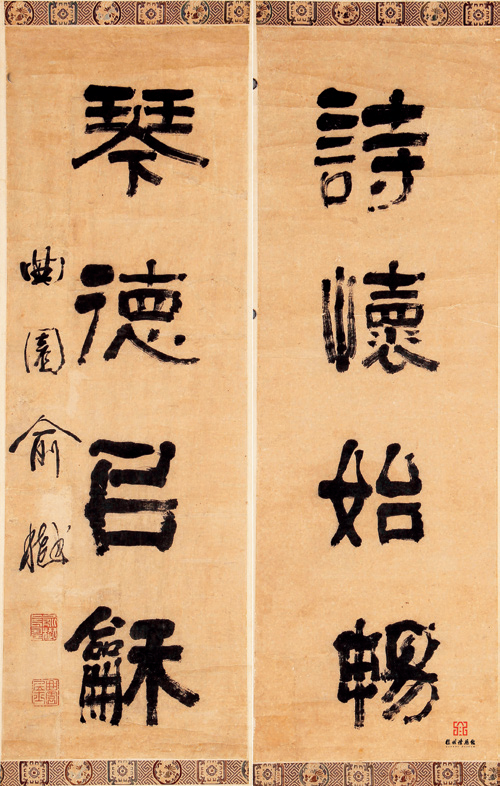 詩懷始暢
琴德㠯龢
曲園俞樾